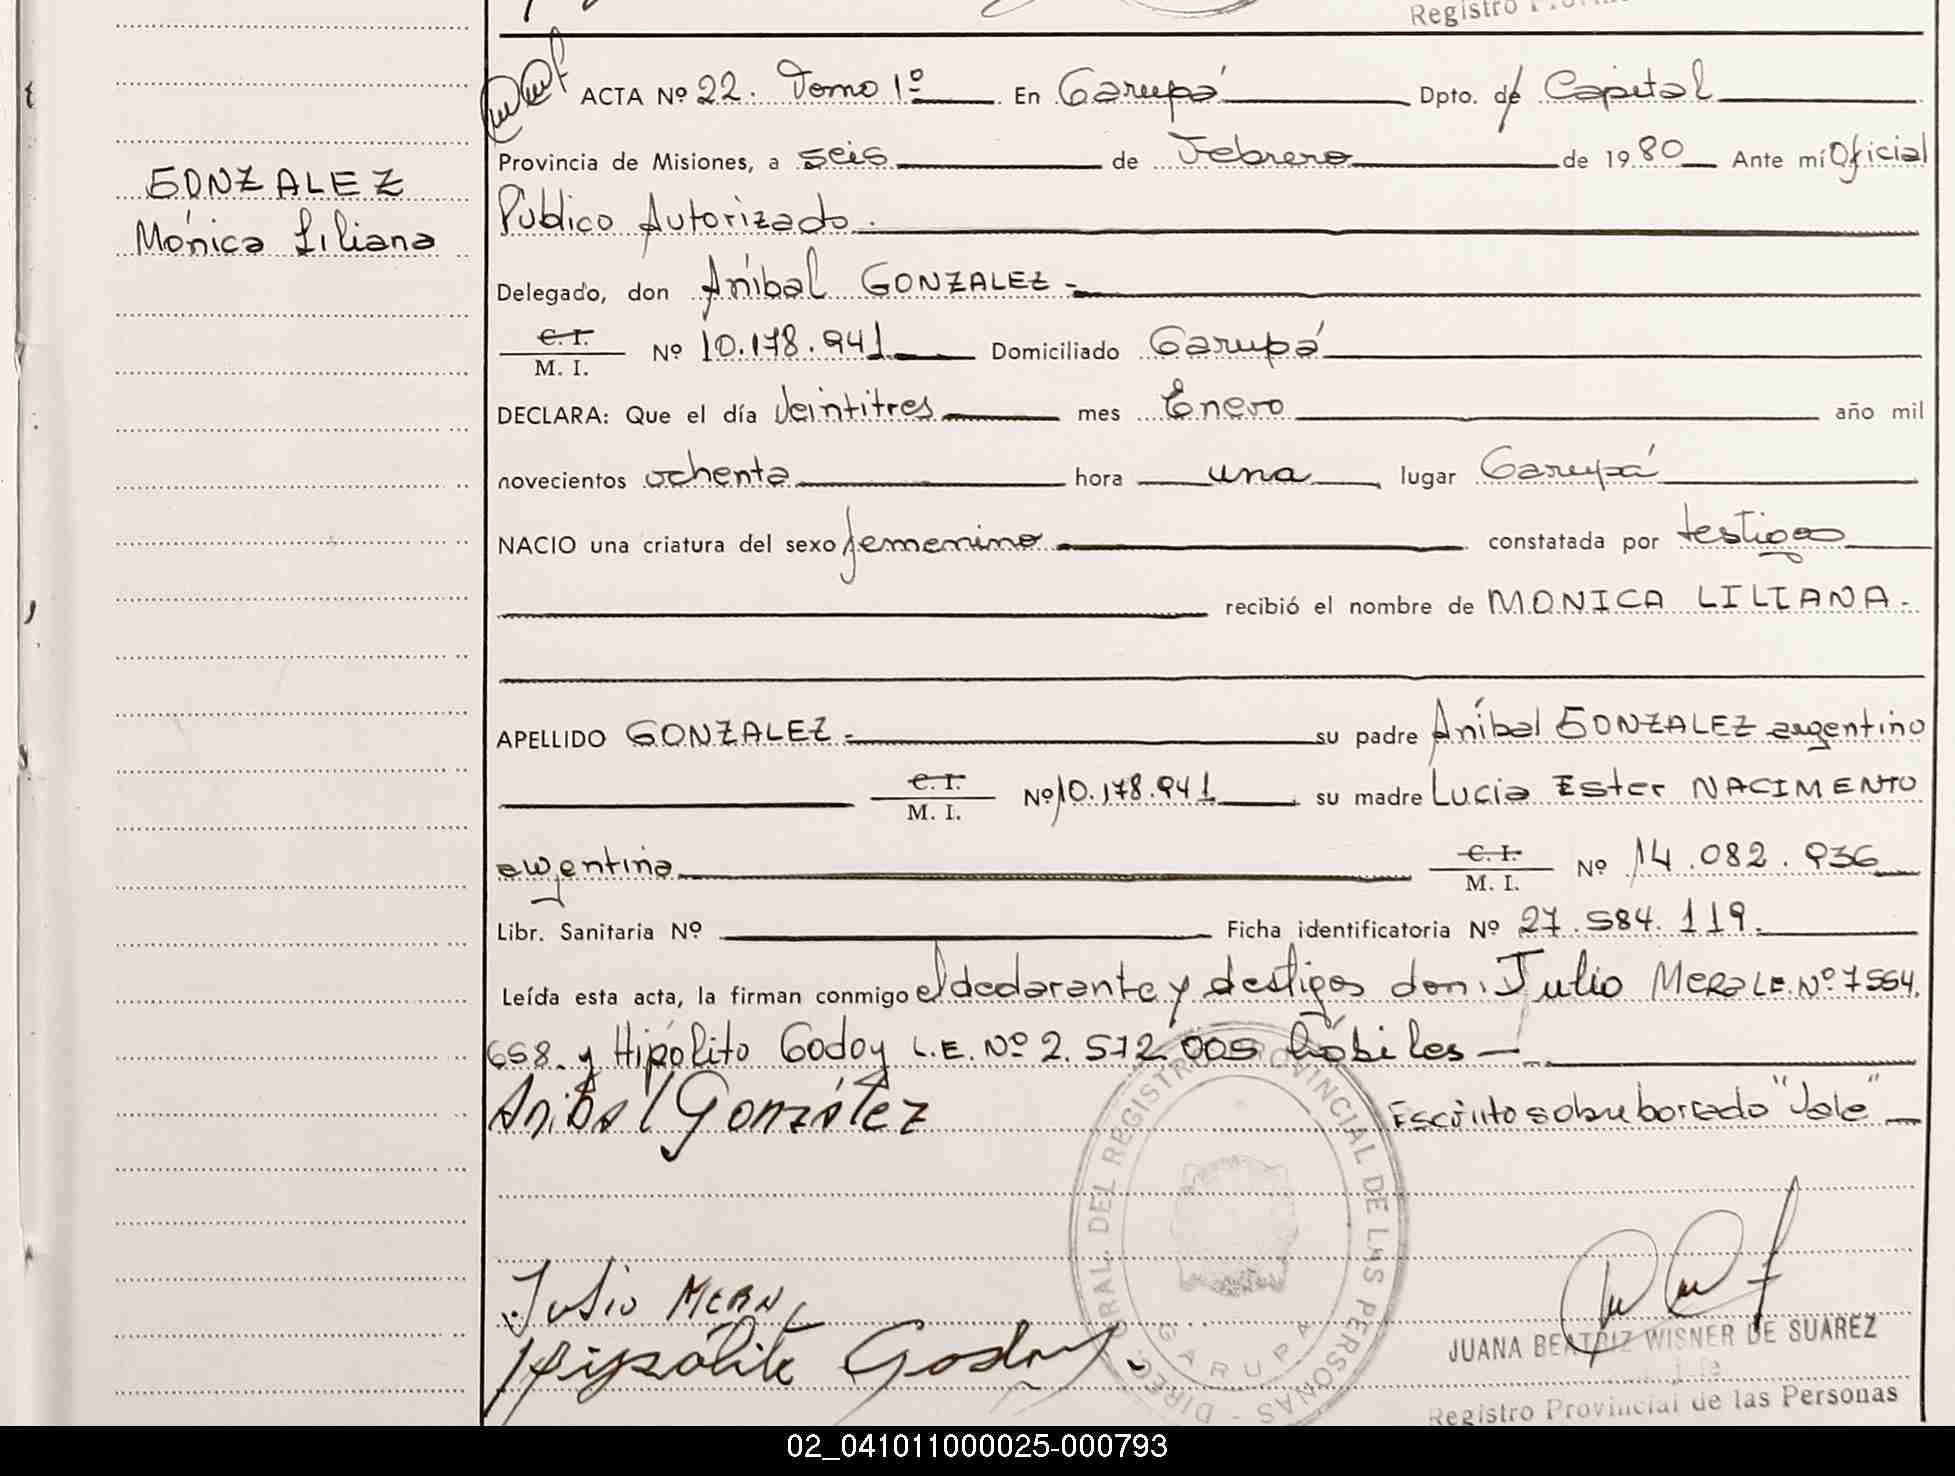 Registro
ACTA Nº 22. Tomo 1º En Garupá Dpto. de Capital
Provincia de Misiones, a seis de Febrero de 1980 Ante mí Oficial
GONZALEZ
Público Autorizado.
Mónica Liliana
Delegado, don Aníbal GONZALEZ-
C. I.
M. I. Nº 10.178.941 Domiciliado Garupá
DECLARA: Que el día Veintitres mes Enero año mil
novecientos ochenta hora una lugar Garupá
NACIO una criatura del sexo femenino constatada por testigos
recibió el nombre de MONICA LILIANA.-
APELLIDO GONZALEZ- su padre Aníbal GONZALEZ argentino
C. I.
M. I. Nº 10.178.941 su madre Lucia Ester NACIMENTO
argentina C. I.
M. I. Nº 14.082.936
Libr. Sanitaria Nº Ficha identificatoria Nº 27.584.119.
Leída esta acta, la firman conmigo el declarante y testigos don: Julio MERA L.E. Nº 7554.
658. y Hipólito Godoy L.E. Nº 2.572.005 hábiles —
Anibal Gonzalez Escrito sobre borrado "Vale"
DIREC. GRAL. DEL REGISTRO PROVINCIAL DE LAS PERSONAS -
GARUPA
Julio MERA
Hipólito Godoy.
JUANA BEATRIZ WISNER DE SUAREZ
Jefe
Registro Provincial de las Personas
02_041011000025-000793